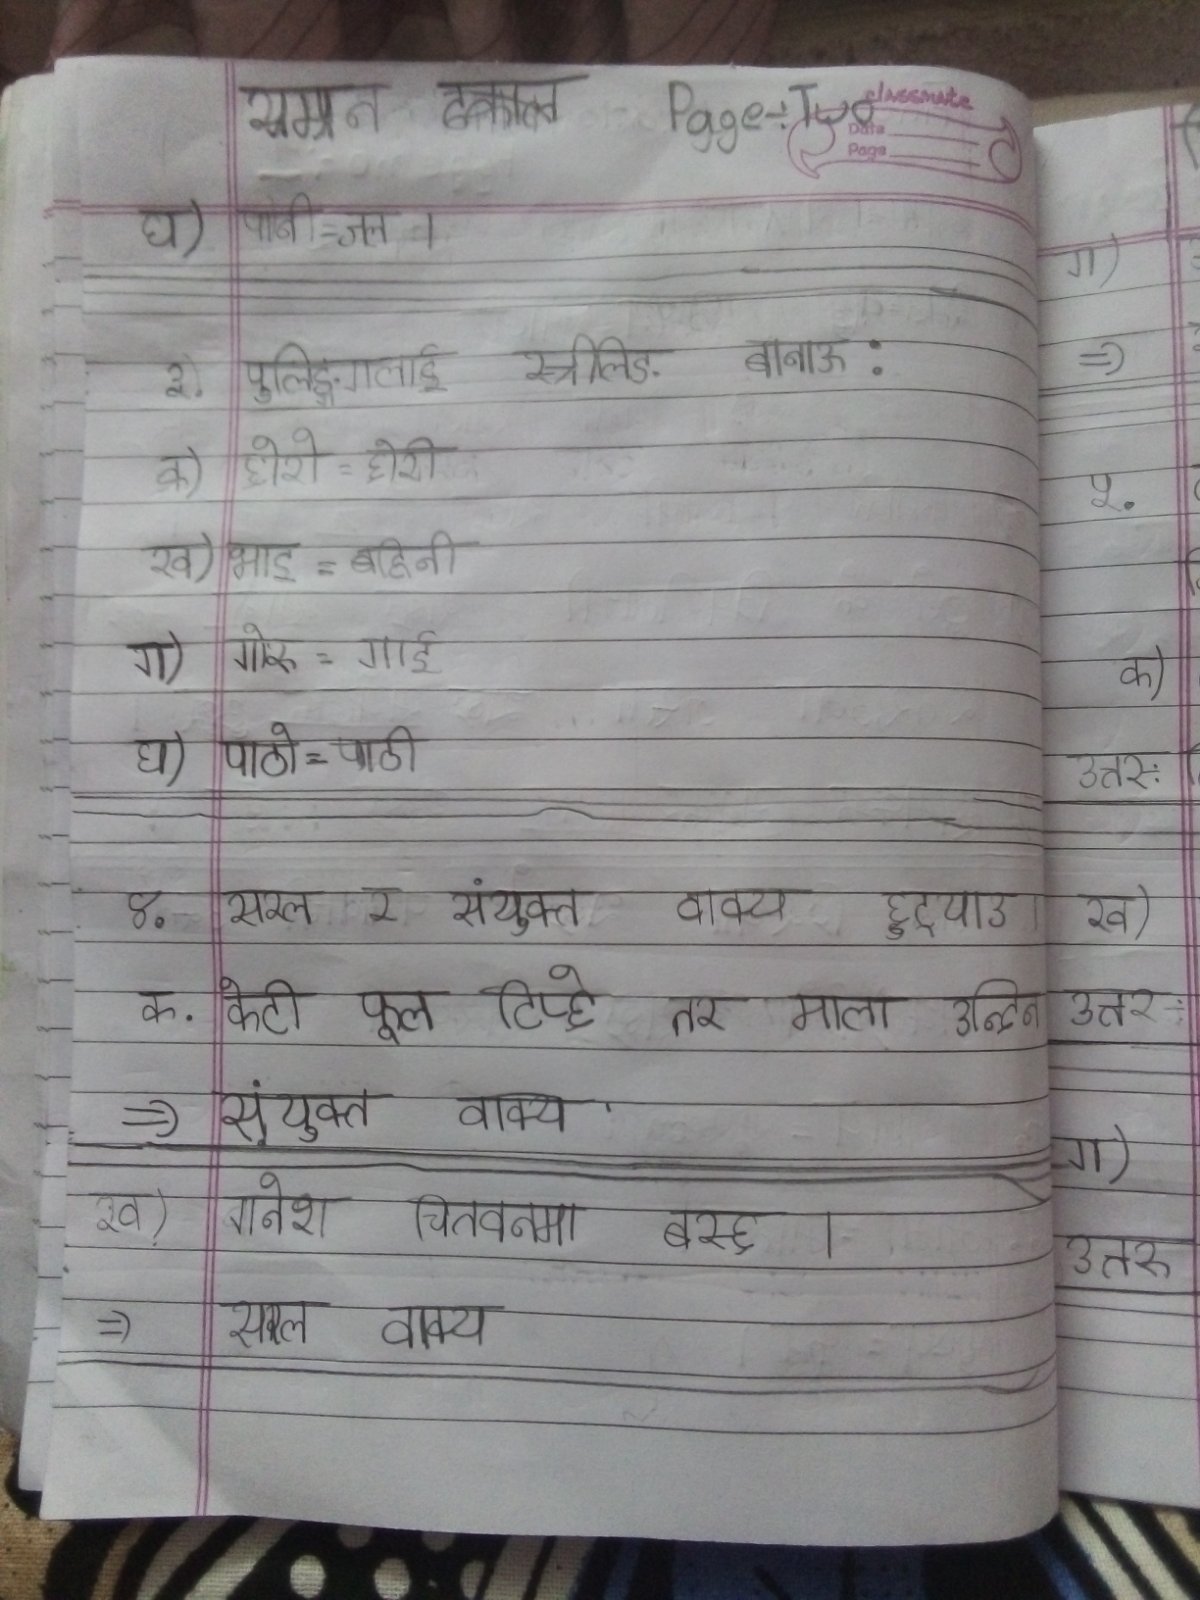 सम्रान ढकाल Page÷Two
classmate
Date
Page
घ) पानी=जल ।
३. पुलिङ्गलाई स्त्रीलिङ बानाऊ :
क) छोरो = छोरी
ख) भाइ = बहिनी
ग) गोरू = गाई
घ) पाठो = पाठी
४. सरल र संयुक्त वाक्य छुट्याउ
क. केटी फूल टिप्छे तर माला उन्दिन
⇒ संयुक्त वाक्य
ख) गनेश चितवनमा बस्छ ।
⇒ सरल वाक्य
ग)
⇒
५.
क)
उत्तर:
ख)
उत्तर÷
ग)
उत्तरू